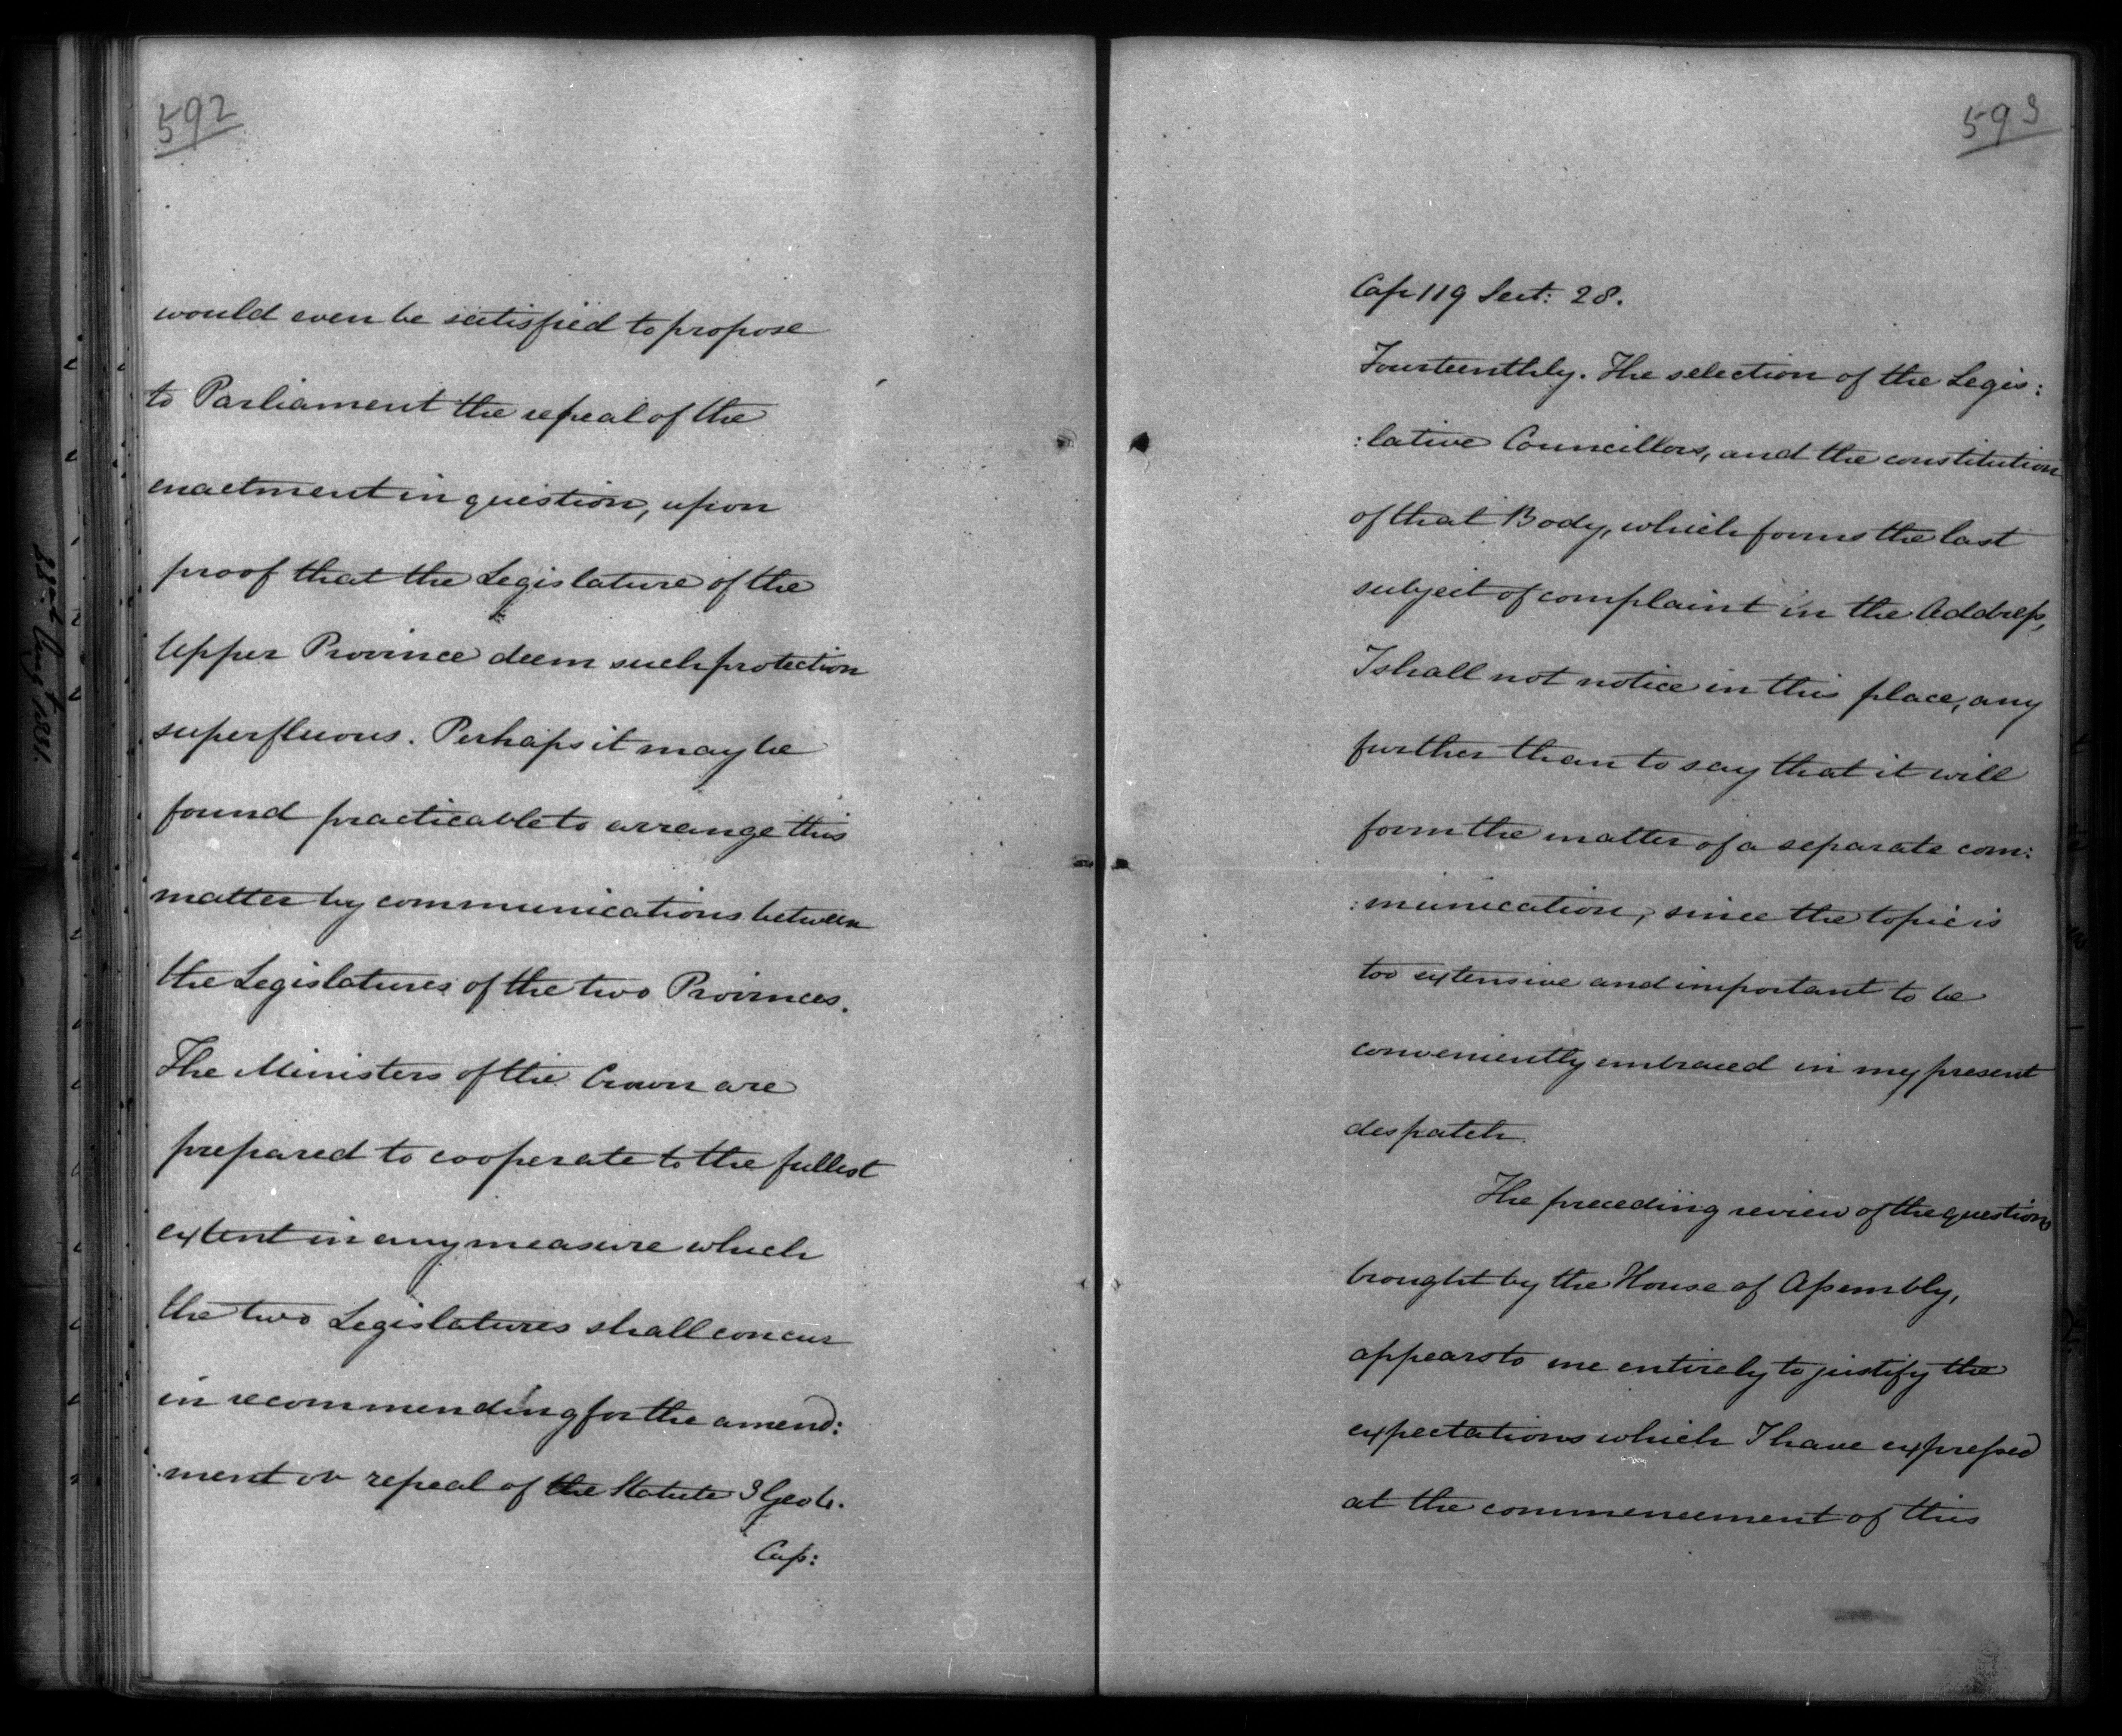 592
would even be satisfied to propose
to Parliament the repeal of the
enactment in question, upon
proof that the Legislature of the
Upper Province deem such protection
superfluous. Perhaps it may be
found practicable to arrange this
matter by communications between
the Legislatures of the two Provinces.
The Ministers of the Crown are
prepared to cooperate to the fullest
extent in any measure which
the two Legislatures shall concur
in recommending for the amend:
:ment or repeal of the Statute 3 Geo 4.
Cap:
593
Cap 119 Sect: 28.
Fourteenthly. The selection of the Legis:
:lative Councillors, and the constitution
of that Body, which forms the last
subject of complaint in the Address,
I shall not notice in this place, any
further than to say that it will
form the matter of a separate com:
:munication, since the topic is
too extensive and important to be
conveniently embraced in my present
despatch.
The preceding review of the questions
brought by the House of Assembly,
appears to me entirely to justify the
expectations which I have expressed
at the commencement of this